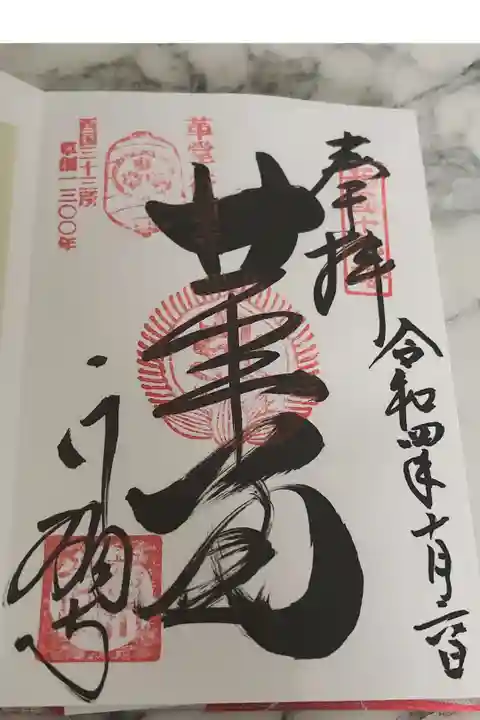 奉拝
令和四年十月二日
革堂
行願寺
革堂
西国三十三所
草創一三〇〇年